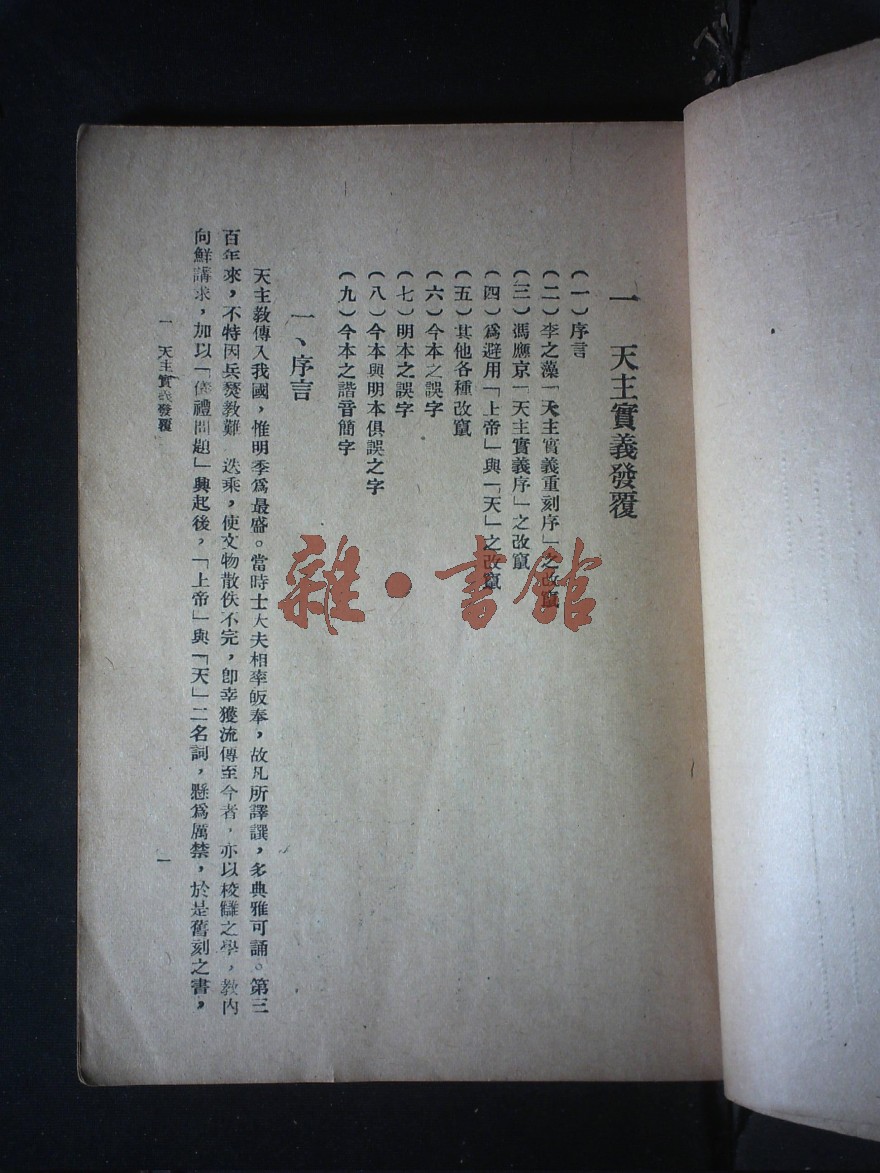 一　天主實義發覆
（一）序言
（二）李之藻「天主實義重刻序」之改竄
（三）馮應京「天主實義序」之改竄
（四）爲避用「上帝」與「天」之改竄
（五）其他各種改竄
（六）今本之誤字
（七）明本之誤字
（八）今本與明本俱誤之字
（九）今本之諧音簡字
一、序言
天主教傳入我國，惟明季爲最盛。當時士大夫相率皈奉，故凡所譯譔，多典雅可誦。第三
百年來，不特因兵燹教難　迭乘，使文物散佚不完，卽幸獲流傳至今者，亦以校讎之學，教內
向鮮講求，加以「儀禮問題」興起後，「上帝」與「天」二名詞，懸爲厲禁，於是舊刻之書，
一　天主實義發覆
一
雜·書館